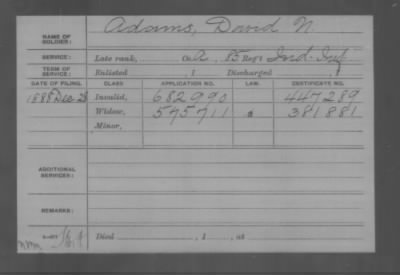 NAME OF SOLDIER: Adams, David N.
SERVICE: Late rank, Co. A, 85 Reg't Ind. Inf.
TERM OF SERVICE: Enlisted , 1 Discharged , 1
DATE OF FILING. CLASS APPLICATION NO. LAW. CERTIFICATE NO.
1888 Dec Invalid, 682990 447289
Widow, 575711 381881
Minor,
ADDITIONAL SERVICES:
REMARKS:
Died , 1 , at